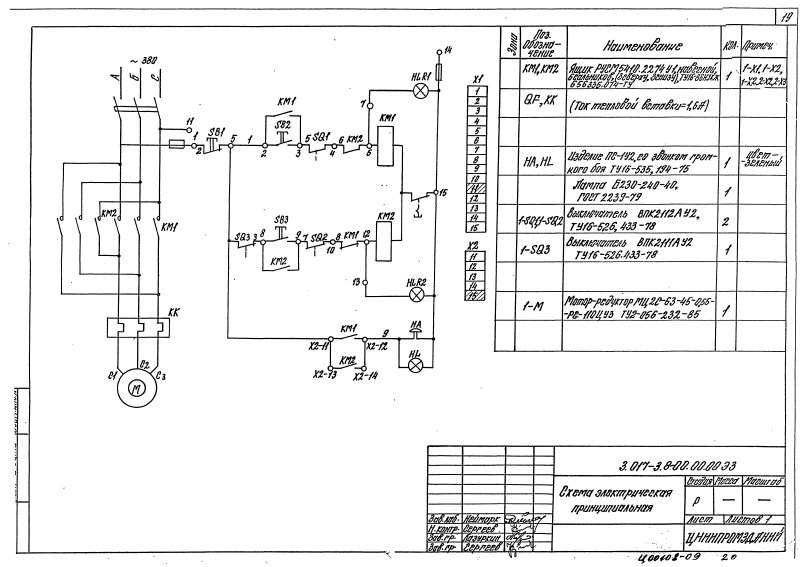 19
~ 380
А Б С
11
1
2
SB1
5
1
KM1
SB2
2
3
5
SQ1
4
6
KM2
6
7
HLR1
14
KM1
15
KM2
KM1
SB3
SQ3
3
8
9
7
SQ2
10
8
KM1
12
KM2
KM2
13
HLR2
KK
C1
C2
C3
M
X2-11
KM1
X2-12
9
HA
KM2
X2-13
X2-14
HL
X1
1
2
3
4
5
6
7
8
9
10
11
12
13
14
15
X2
11
12
13
14
15
Зона
Поз. обозначение
Наименование
Кол.
Примеч.
KM1, KM2
Ящик РУСМ5410.2274У1, навесной,
656335.014-ТУ
1
1-X1, 1-X2,
1-X2.2-X2.2-X3
QF, KK
(Ток тепловой вставки=1,6А)
HA, HL
Изделие ПС-1У2, со звонком гром-
кого боя ТУ16-535, 194-75
1
цвет-
зеленый
Лампа Б230-240-40,
ГОСТ 2239-79
1
1-SQ1, 1-SQ2
Выключатель ВПК2112АУ2,
ТУ16-526.433-78
2
1-SQ3
Выключатель ВПК2111АУ2
ТУ16-526.433-78
1
1-М
Мотор-редуктор МЦ2С-63-45-0,55-
-РС-110ЦУ3 ТУ2-056-232-85
1
3.017-3.8-00.00.00 ЭЗ
Схема электрическая
принципиальная
Стадия Масса Масштаб
Р — —
Лист Листов 1
ЦНИИПРОМЗДАНИЙ
Зав.лаб. Неймарк
Н.контр. Сергеев
Зав.гр. Лазуркин
Зав.гр. Сергеев
Ц00102-09 20